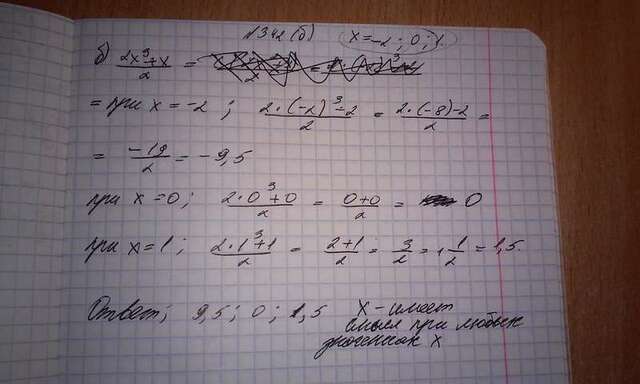 №342(б) x=-2; 0; 1.
б) (2x³+x)/2 =
= при x = -2; (2·(-2)³-2)/2 = (2·(-8)-2)/2 =
= -19/2 = -9,5
при x=0; (2·0³+0)/2 = (0+0)/2 = 0
при x=1; (2·1³+1)/2 = (2+1)/2 = 3/2 = 1 1/2 = 1,5.
Ответ; 9,5; 0; 1,5 x - имеет
смысл при любых
значениях x